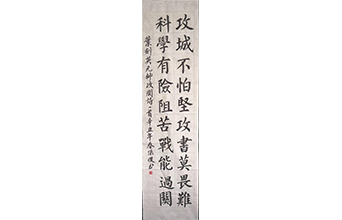 攻城不怕堅攻書莫畏難
科學有險阻苦戰能過關
葉劍英元帥攻關詩一首辛丑年